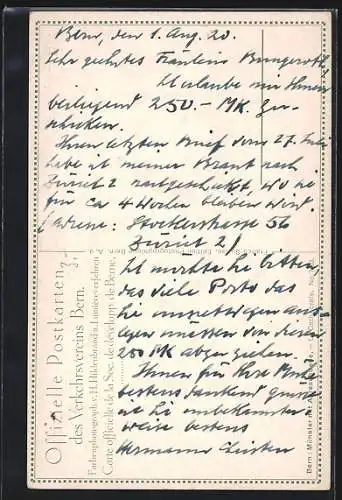 Bern, den 1. Aug. 20.
Sehr geehrtes Fräulein
Erlaube mir Ihnen
beiliegend 250.- MK. zu
schicken.
Ihren letzten Brief vom 27. Juli
habe ich meiner Braut nach
Zürich 2 nachgeschickt, wo sie
für ca 4 Wochen bleiben wird.
(Adresse: Stockerstrasse 56
Zürich 2)
Ich möchte Sie bitten,
das viele Porto das
Sie unsretwegen aus-
legen müssen von diesen
250 MK abzuziehen.
Ihnen für Ihre Mühe
bestens dankend grüsst
Sie unbekannter-
weise bestens
Hermann
Offizielle Postkarten
des Verkehrsvereins Bern.
Farbenphotograph. v. H. Hildenbrand a. Lumièreverfahren
Carte officielle de la Soc. de développm't de Berne.
Bern: Münster mit